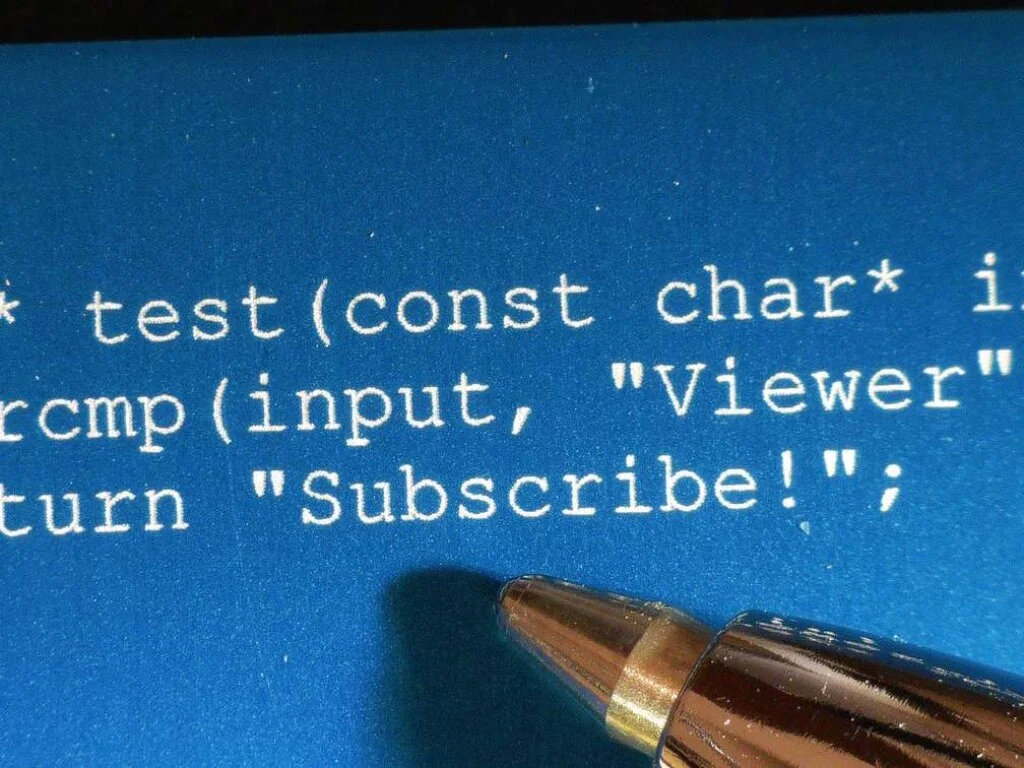 * test(const char* in
rcmp(input, "Viewer"
turn "Subscribe!";